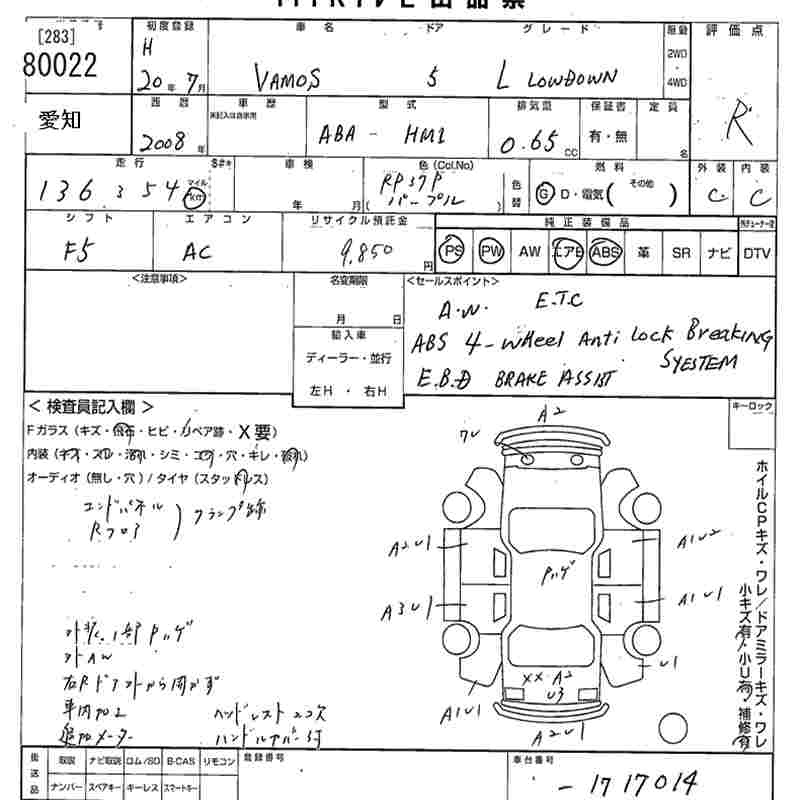 [283]
80022
愛知
初度登録
車名
ドア
グレード
2WD
・
4WD
評価点
H
20年 7月
VAMOS
5
L LOWDOWN
R
西暦
車歴
型式
排気量
保証書
定員
2008年
未記入は自家用
ABA - HM1
0.65cc
有・無
名
走行
マイル
km
車検
色(Col.No)
燃料
外装
内装
136354
年 月
RP37P
(パープル)
色替
G D・電気(その他 )
C
C
シフト
エアコン
リサイクル預託金
純正装備品
F5
AC
9,850円
PS PW AW エアB ABS 革 SR ナビ DTV
<注意事項>
名変期限
月 日
<セールスポイント>
A.W. E.T.C
ABS 4-wheel Anti Lock Breaking
SYESTEM
E.B.D BRAKE ASSIST
輸入車
ディーラー・並行
左H・右H
<検査員記入欄>
キーロック
Fガラス(キズ・飛石・ヒビ・リペア跡・X要)
オーディオ(無し・穴)/タイヤ(スタッドレス)
エンドパネル
Rフロア
クランプ跡
A2
7U
A2U1
A1U2
Pハゲ
A3U1
A1U1
U1
XX・A2
U3
A1U1
A2U1
ホイルCPキズ・ワレ/ドアミラーキズ・ワレ
小キズ有/小U有・補修有
外装一部Pハゲ
社外AW
車内加工
追加メーター
ヘッドレスト欠
ハンドルカバー付
後送品
取説 ナビ取説 ロム/SD B-CAS リモコン
ナンバー スペアキー キーレス スマートキー
登録番号
車台番号
-1717014